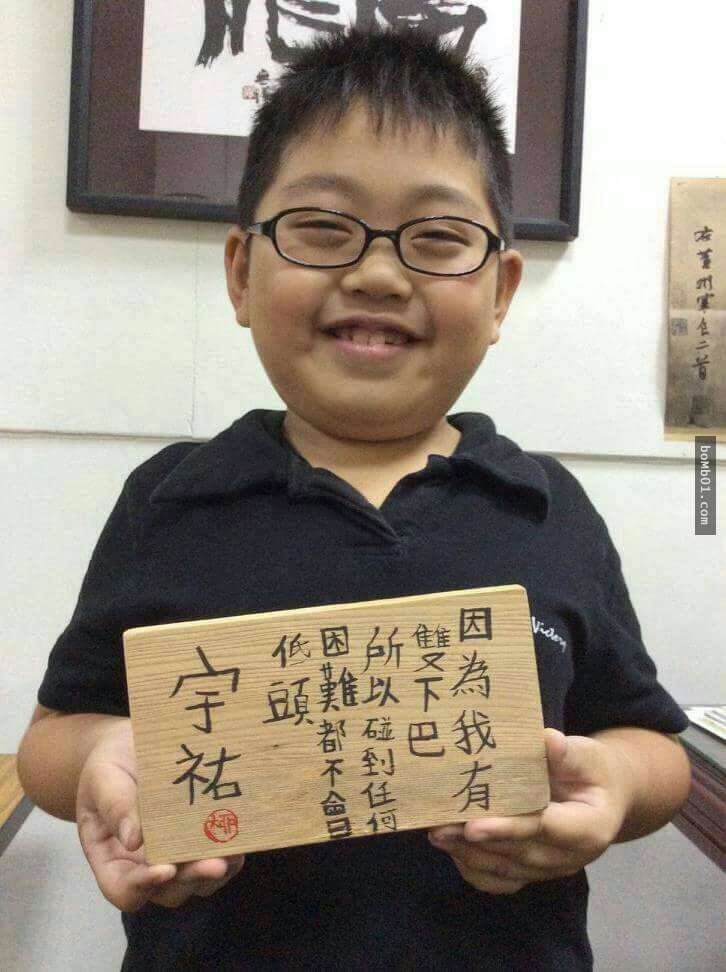 因為我有
雙下巴
所以碰到任何
困難都不會
低頭
宇祐
Victory
右黃州寒食二首
bomb01.com